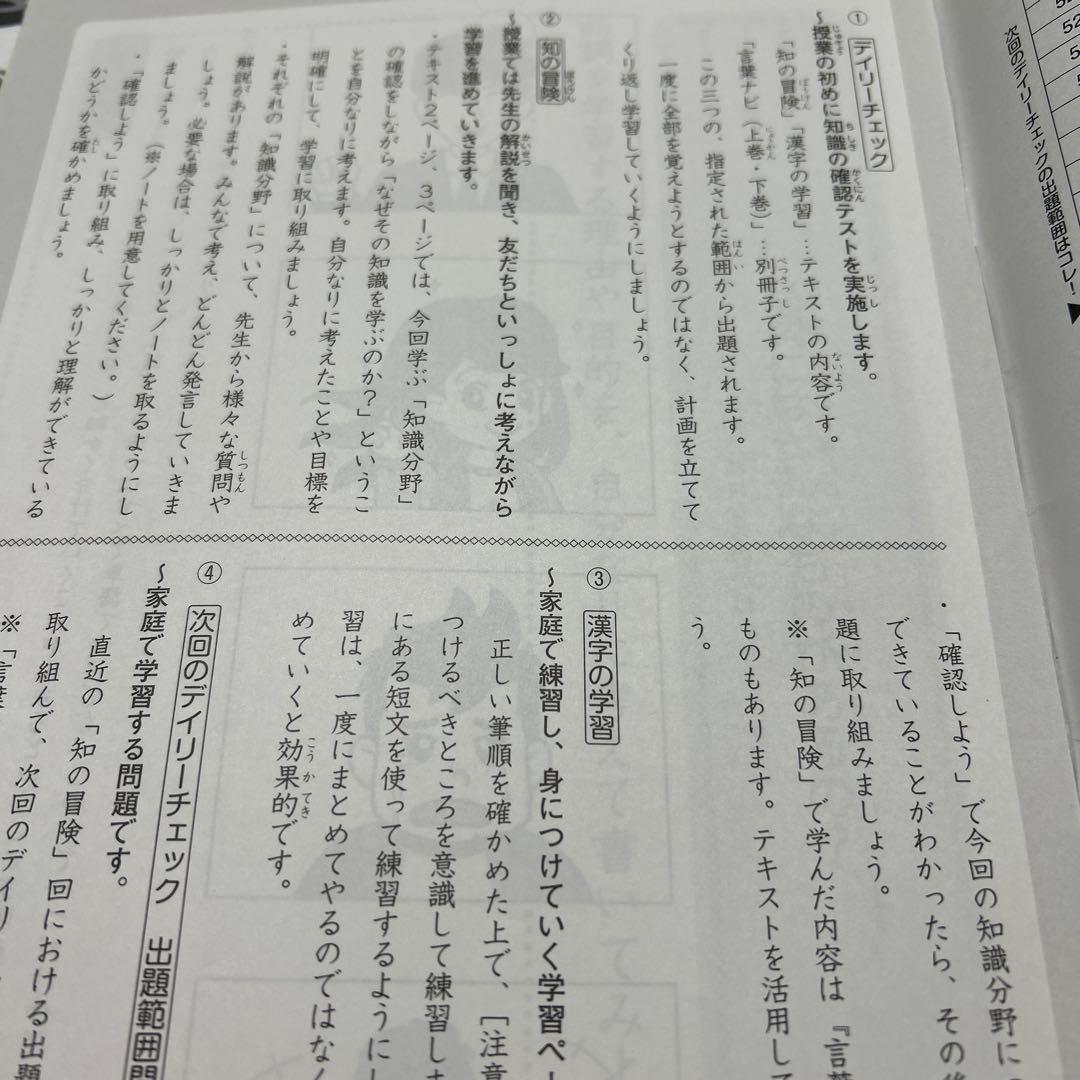 次回のデイリーチェックの出題範囲はコレ！▶
① デイリーチェック
～授業の初めに知識の確認テストを実施します。
「知の冒険」「漢字の学習」…テキストの内容です。
「言葉ナビ（上巻・下巻）」…別冊子です。
この三つの、指定された範囲から出題されます。
一度に全部を覚えようとするのではなく、計画を立てて
くり返し学習していくようにしましょう。
② 知の冒険
～授業では先生の解説を聞き、友だちといっしょに考えながら
学習を進めていきます。
・テキスト2ページ、3ページでは、今回学ぶ「知識分野」
の確認をしながら「なぜその知識を学ぶのか？」というこ
とを自分なりに考えます。自分なりに考えたことや目標を
明確にして、学習に取り組みましょう。
・それぞれの「知識分野」について、先生から様々な質問や
解説があります。みんなで考え、どんどん発言していきま
しょう。必要な場合は、しっかりとノートを取るようにし
ましょう。（※ノートを用意してください。）
・「確認しよう」に取り組み、しっかりと理解ができている
かどうかを確かめましょう。
・「確認しよう」で今回の知識分野に
できていることがわかったら、その後
題に取り組みましょう。
※「知の冒険」で学んだ内容は『言葉
ものもあります。テキストを活用して
う。
③ 漢字の学習
～家庭で練習し、身につけていく学習ペー
正しい筆順を確かめた上で、［注意
つけるべきところを意識して練習しま
にある短文を使って練習するようにし
習は、一度にまとめてやるのではなく
めていくと効果的です。
④ 次回のデイリーチェック 出題範囲問
～家庭で学習する問題です。
直近の「知の冒険」回における出題
取り組んで、次回のデイリ
※「言葉